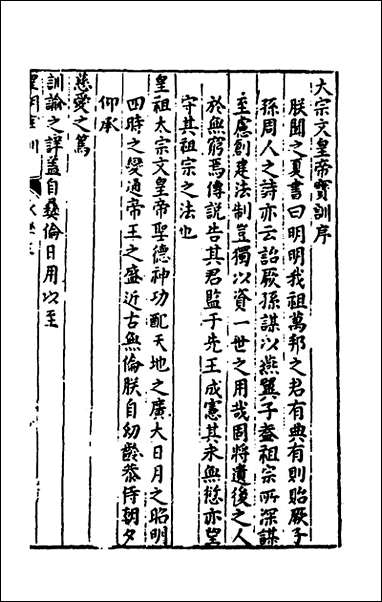 大宗文皇帝寶訓序
朕聞之夏書曰明明我祖萬邦之君有典有則貽厥子
孫周人之詩亦云詒厥孫謀以燕翼子葢祖宗所深謀
至慮創建法制豈獨以資一世之用哉固將遺後之人
於無窮焉傅說告其君監于先王成憲其永無愆亦望
守其祖宗之法也
皇祖太宗文皇帝聖德神功配天地之廣大日月之昭明
四時之變通帝王之盛近古無倫朕自幼齡恭侍朝夕
仰承
慈愛之篤
訓諭之詳蓋自彞倫日用以至
皇明寶訓